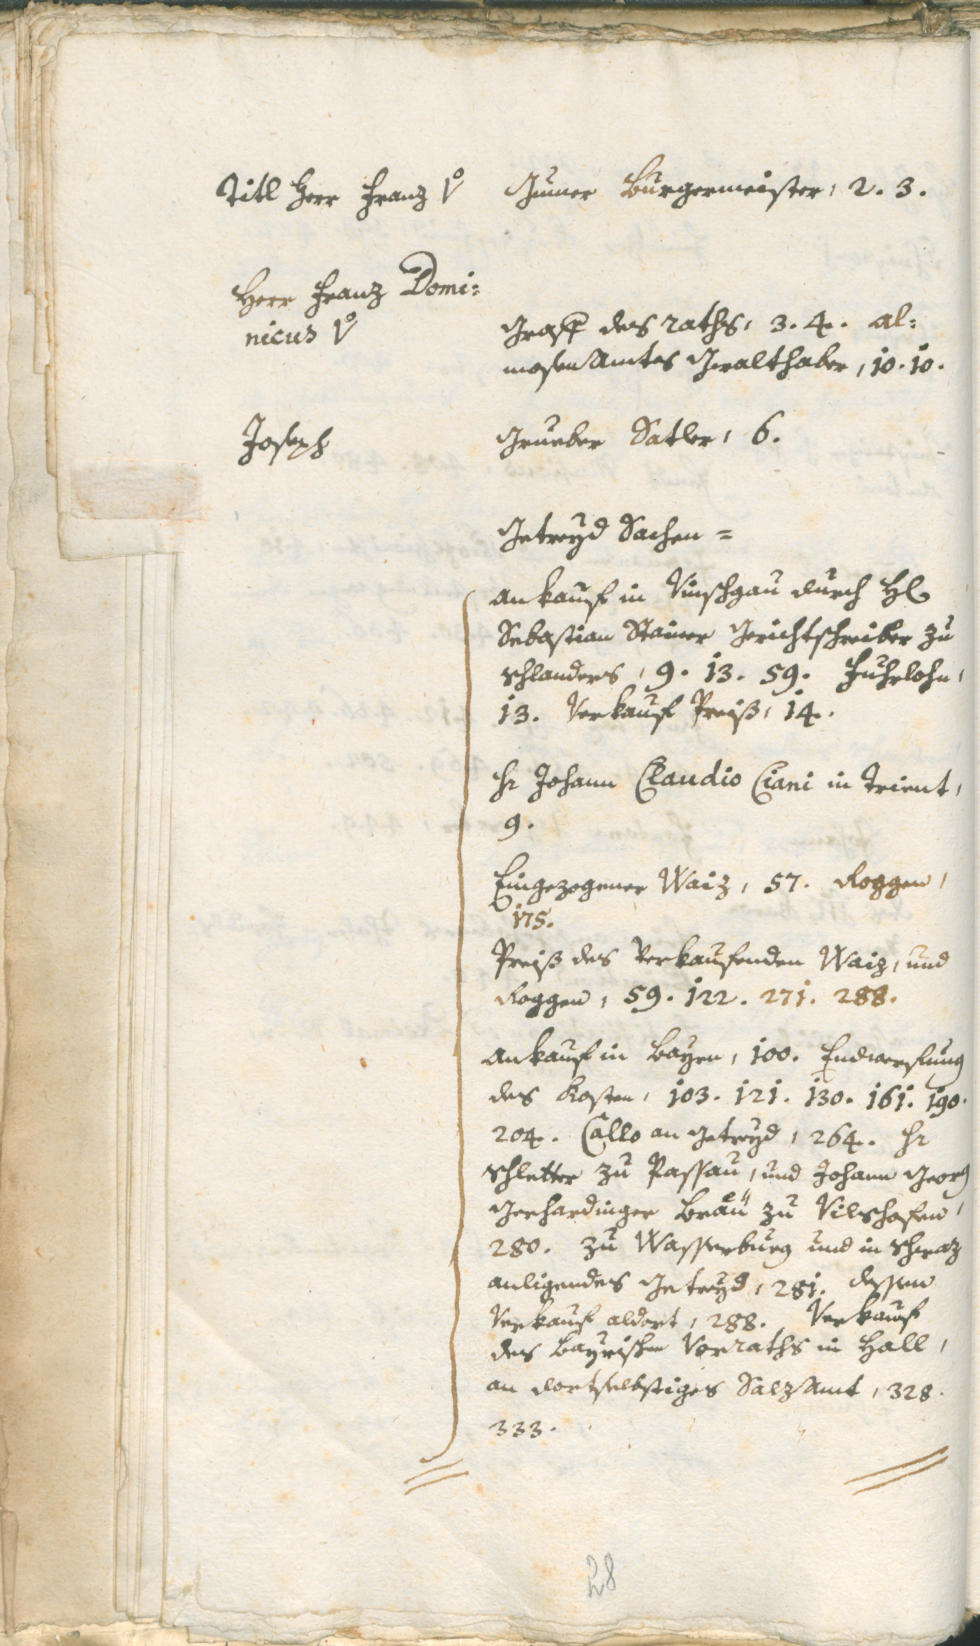 Titl Herr Franz v̊ Gumer Burgermeister, 2. 3.
Herr Franz Domi=
nicus v̊ Graff des raths, 3. 4. al=
mosen Amtes Gwalthaber, 10. 10.
Joseph Grueber Satler, 6.
Getreyd Sachen =
Ankauf in Vinschgau durch H
Sebastian Stainer Gerichtschreiber zu
Schlanders, 9. 13. 59. Fuhrlohn,
13. Verkauf Preiß, 14.
Hr Johann Claudio Ciani in Trient,
9.
Eingezogener Waiz, 57. Roggen,
175.
Preiß des Verkaufenden Waiz, und
Roggen, 59. 122. 271. 288.
Ankauf in Bayrn, 100. Endwerfung
des Kosten, 103. 121. 130. 161. 190.
204. Callo an getreyd, 264. Hr
Schletter zu Passau, und Johann Georg
Gerhardinger Bräu zu Vilshofen,
280. zu Wasserburg und in Schwaz
anligendes Getreyd, 281. dessen
Verkauf aldort, 288. Verkauf
des Bayrischen Vorraths in Hall,
an dortselbstiges Salz Amt, 328.
333.
28